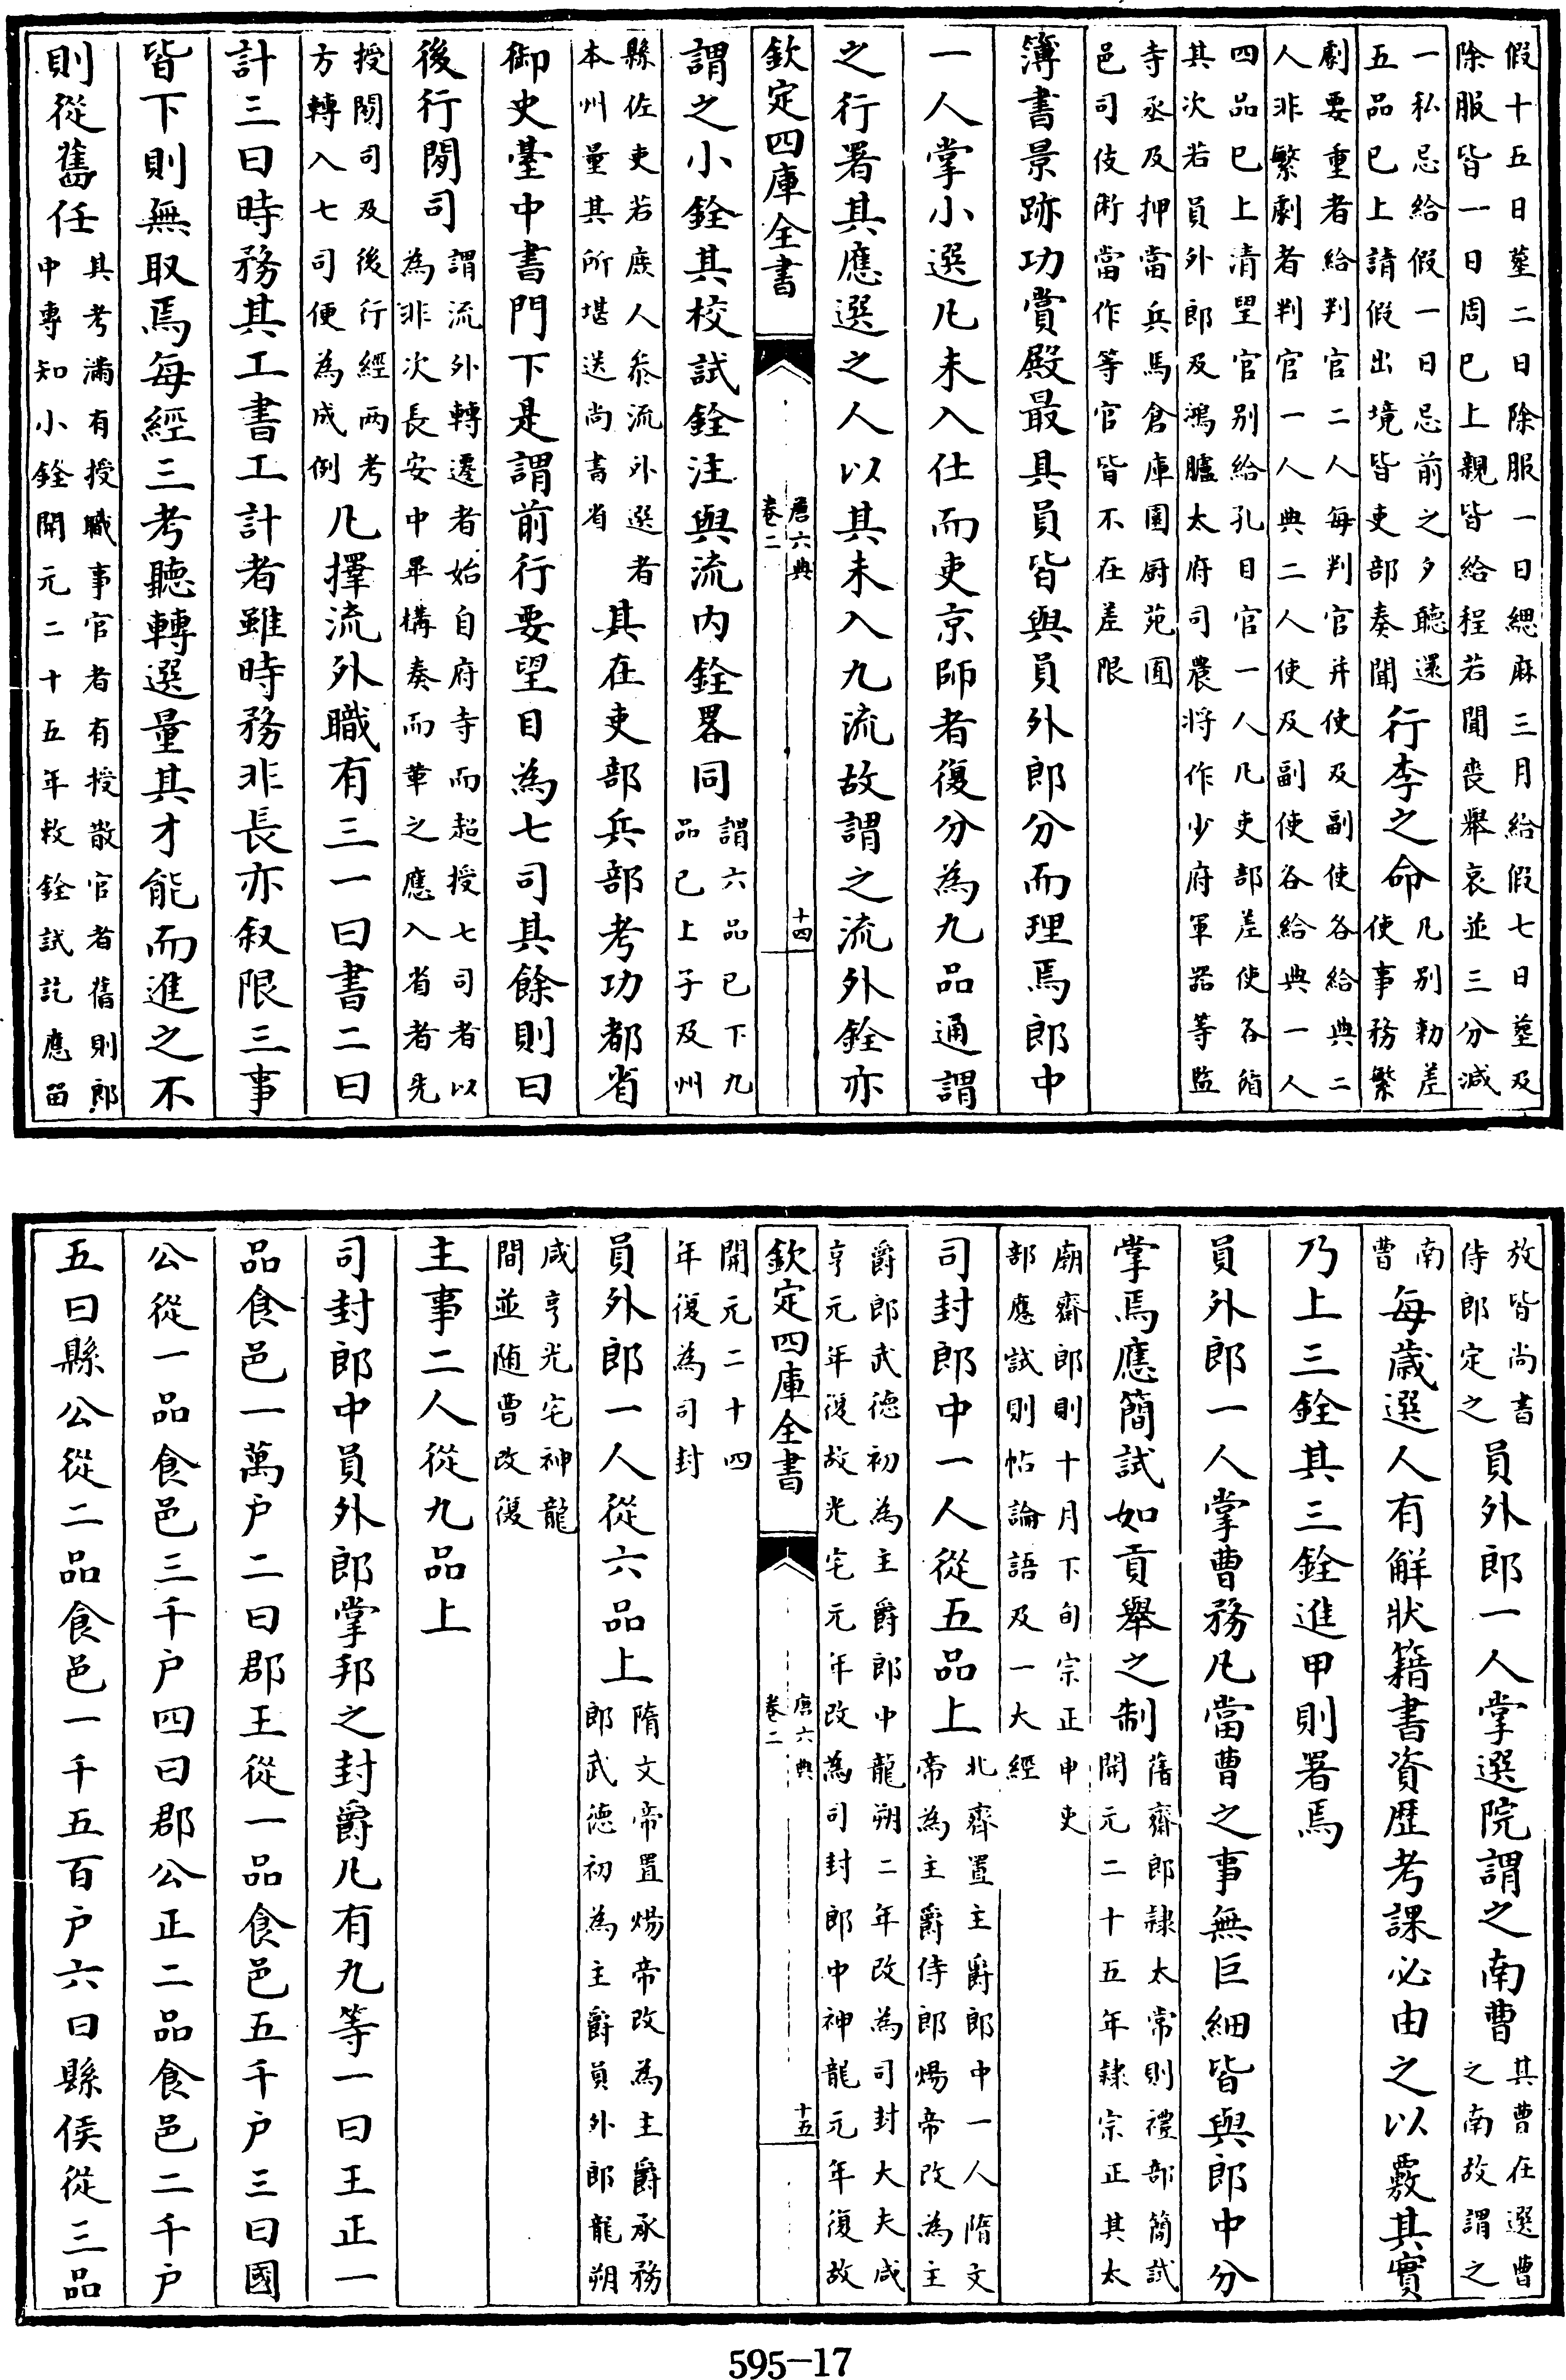 假十五日墓二日除服一日緦麻三月給假七日墓及
除服皆一日周已上親皆給程若聞喪舉哀並三分減
一私忌給假一日忌前之夕聽還
五品已上請假出境皆吏部奏聞
行李之命
凡别勅差
使事務繁
劇要重者給判官二人每判官并使及副使各給典二
人非繁劇者判官一人典二人使及副使各給典一人
四品已上清望官别給孔目官一人凡吏部差使各餙
其次若員外郎及鴻臚太府司農將作少府軍器等監
寺丞及押當兵馬倉庫園厨苑囿
邑司伎術當作等官皆不在差限
簿書景跡功賞殿最具員皆與員外郎分而理焉郎中
一人掌小選凡未入仕而吏京師者復分為九品通謂
之行署其應選之人以其未入九流故謂之流外銓亦
欽定四庫全書
唐六典
卷二
十四
謂之小銓其校試銓注與流内銓畧同
謂六品已下九
品已上子及州
縣佐吏若庶人叅流外選者
本州量其所堪送尚書省
其在吏部兵部考功都省
御史臺中書門下是謂前行要望目為七司其餘則曰
後行閒司
謂流外轉遷者始自府寺而超授七司者以
為非次長安中畢構奏而革之應入省者先
授閒司及後行經兩考
方轉入七司便為成例
凡擇流外職有三一曰書二曰
計三曰時務其工書工計者雖時務非長亦叙限三事
皆下則無取焉每經三考聽轉選量其才能而進之不
則從舊任
其考滿有授職事官者有授散官者舊則郎
中專知小銓開元二十五年敕銓試訖應留
放皆尚書
侍郎定之
員外郎一人掌選院謂之南曹
其曹在選曹
之南故謂之
南
曹
每歲選人有解狀籍書資歷考課必由之以覈其實
乃上三銓其三銓進甲則署焉
員外郎一人掌曹務凡當曹之事無巨細皆與郎中分
掌焉應簡試如貢舉之制
舊齋郎隸太常則禮部簡試
開元二十五年隸宗正其太
廟齋郎則十月下旬宗正申吏
部應試則帖論語及一大經
司封郎中一人從五品上
北齊置主爵郎中一人隋文
帝為主爵侍郎煬帝改為主
爵郎武德初為主爵郎中龍朔二年改為司封大夫咸
亨元年復故光宅元年改為司封郎中神龍元年復故
欽定四庫全書
唐六典
卷二
十五
開元二十四
年復為司封
員外郎一人從六品上
隋文帝置煬帝改為主爵承務
郎武德初為主爵員外郎龍朔
咸亨光宅神龍
間並随曹改復
主事二人從九品上
司封郎中員外郎掌邦之封爵凡有九等一曰王正一
品食邑一萬户二曰郡王從一品食邑五千户三曰國
公從一品食邑三千户四曰郡公正二品食邑二千户
五曰縣公從二品食邑一千五百户六曰縣侯從三品
595-17